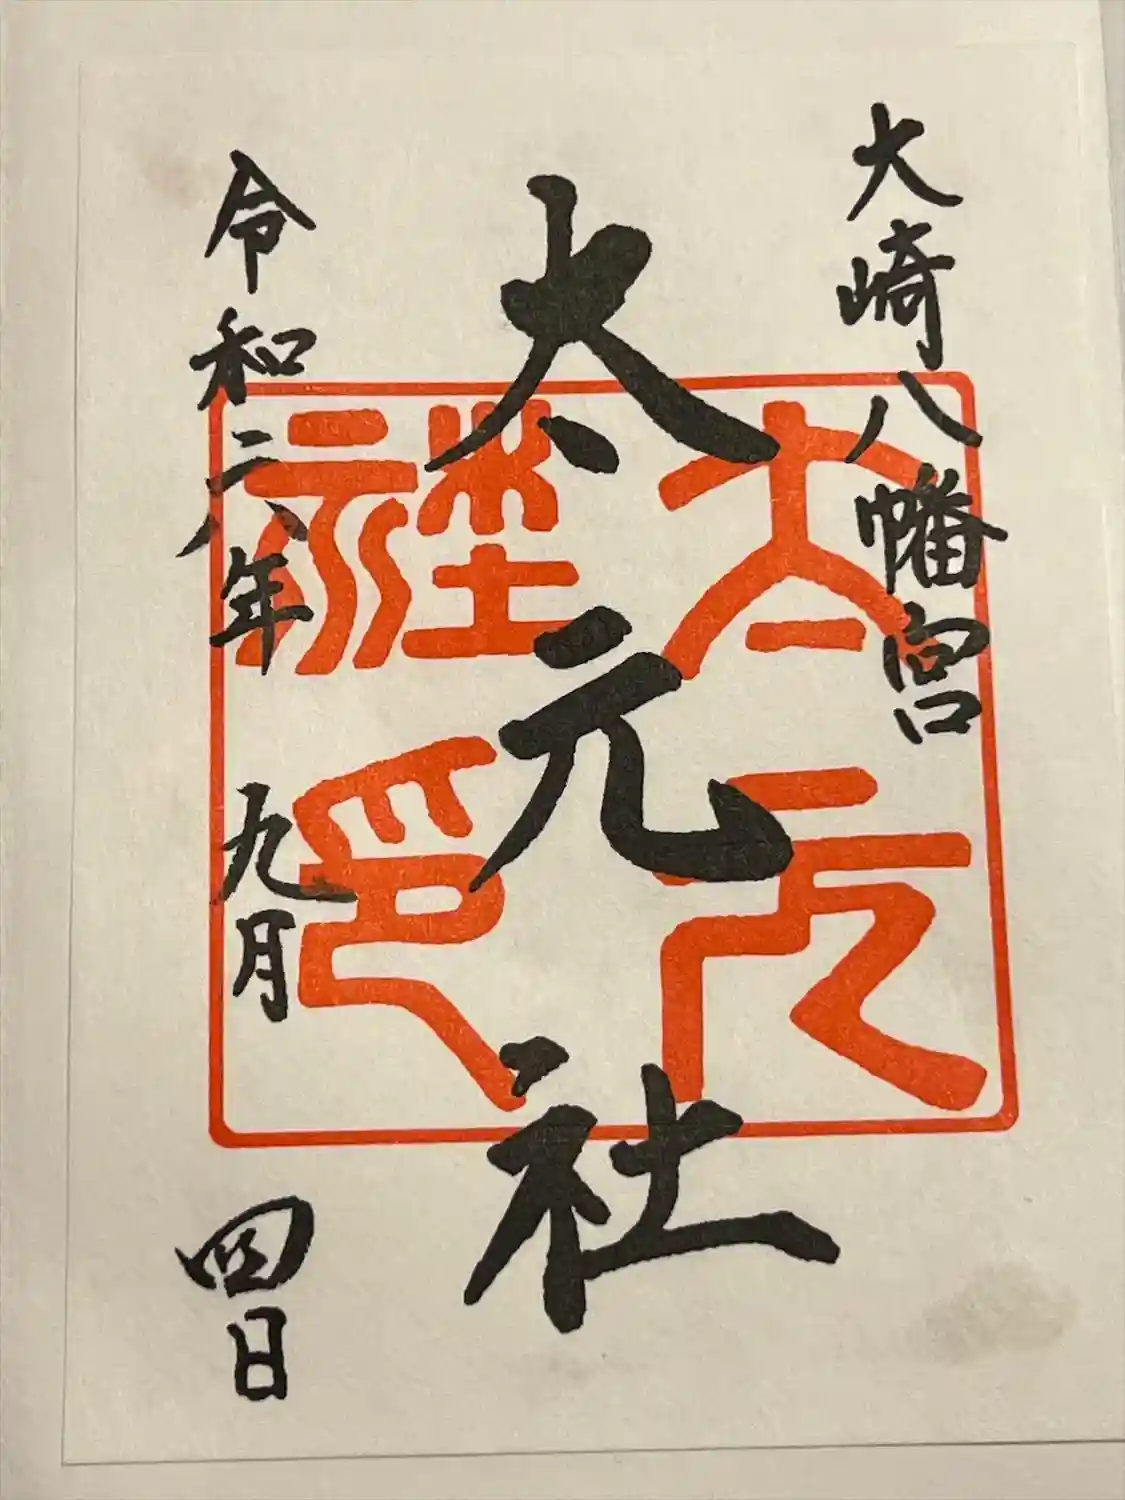 大崎八幡宮
太元社
令和六年 九月 四日
太元
社印